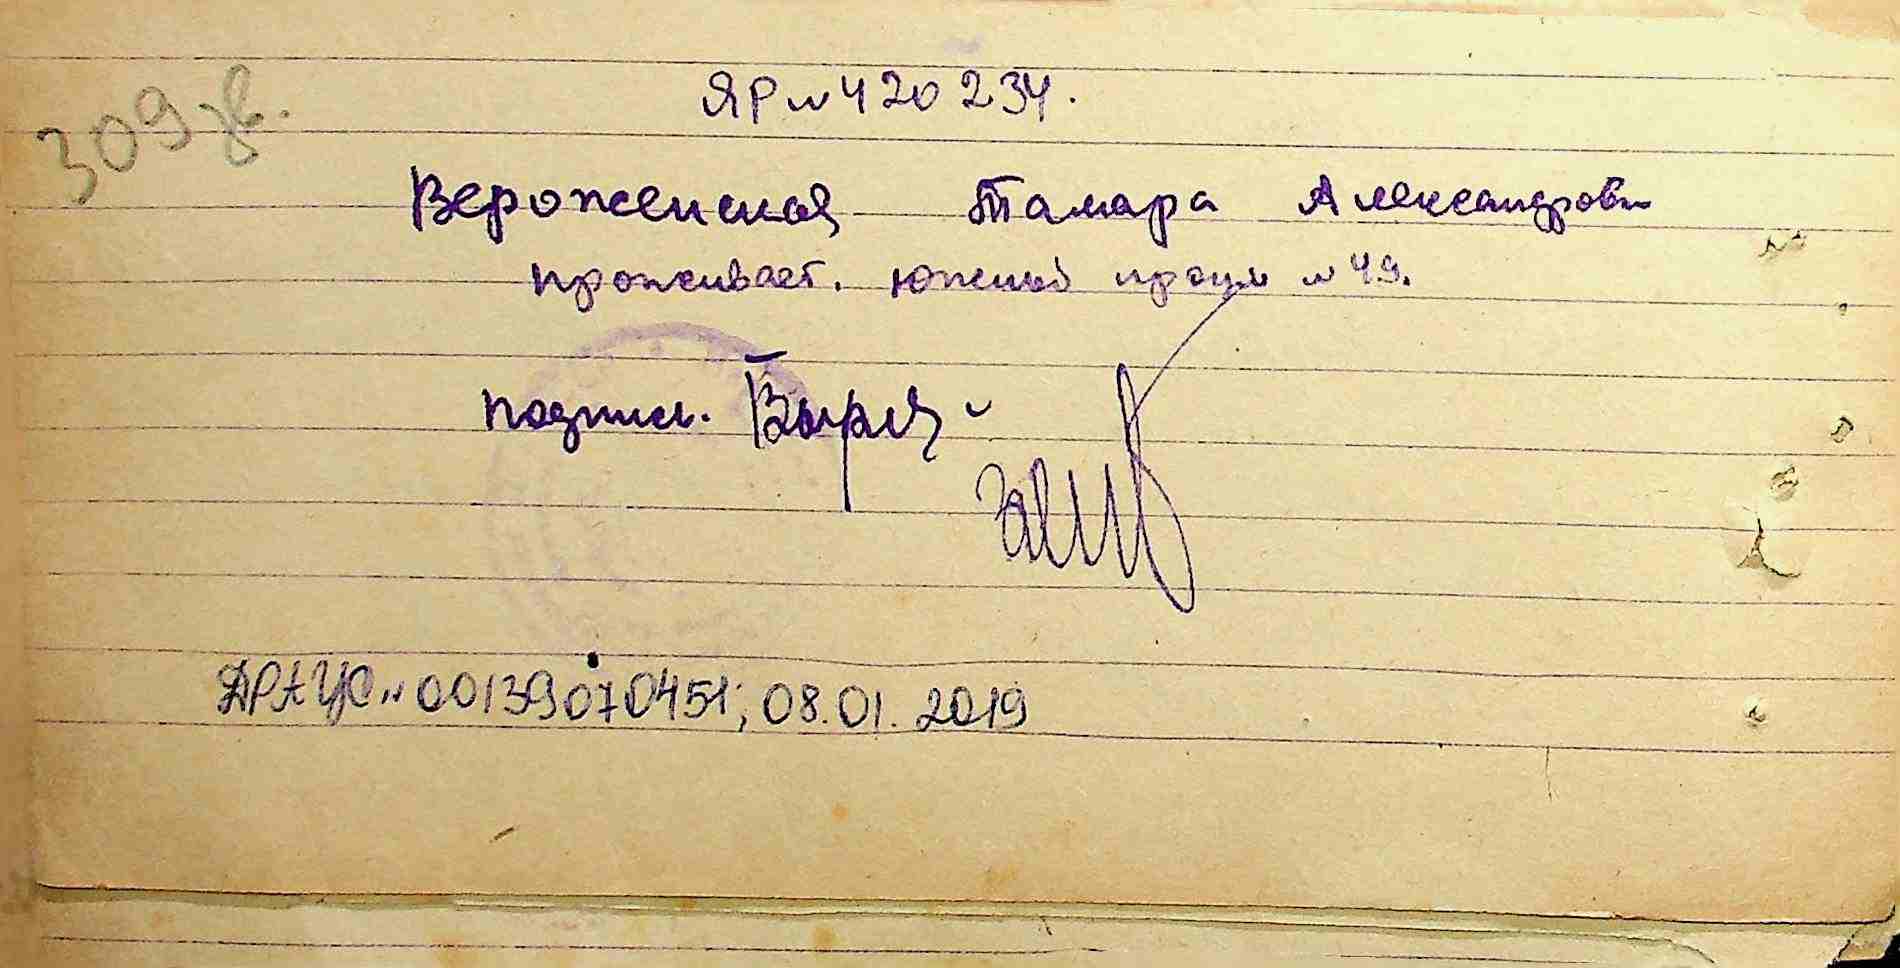 309 зв.
ЯР № 420 234.
Вероженская Тамара Александровн
проживает. южный проезд № 49.
подпись.
ДРАЦС № 00139070451; 08.01.2019